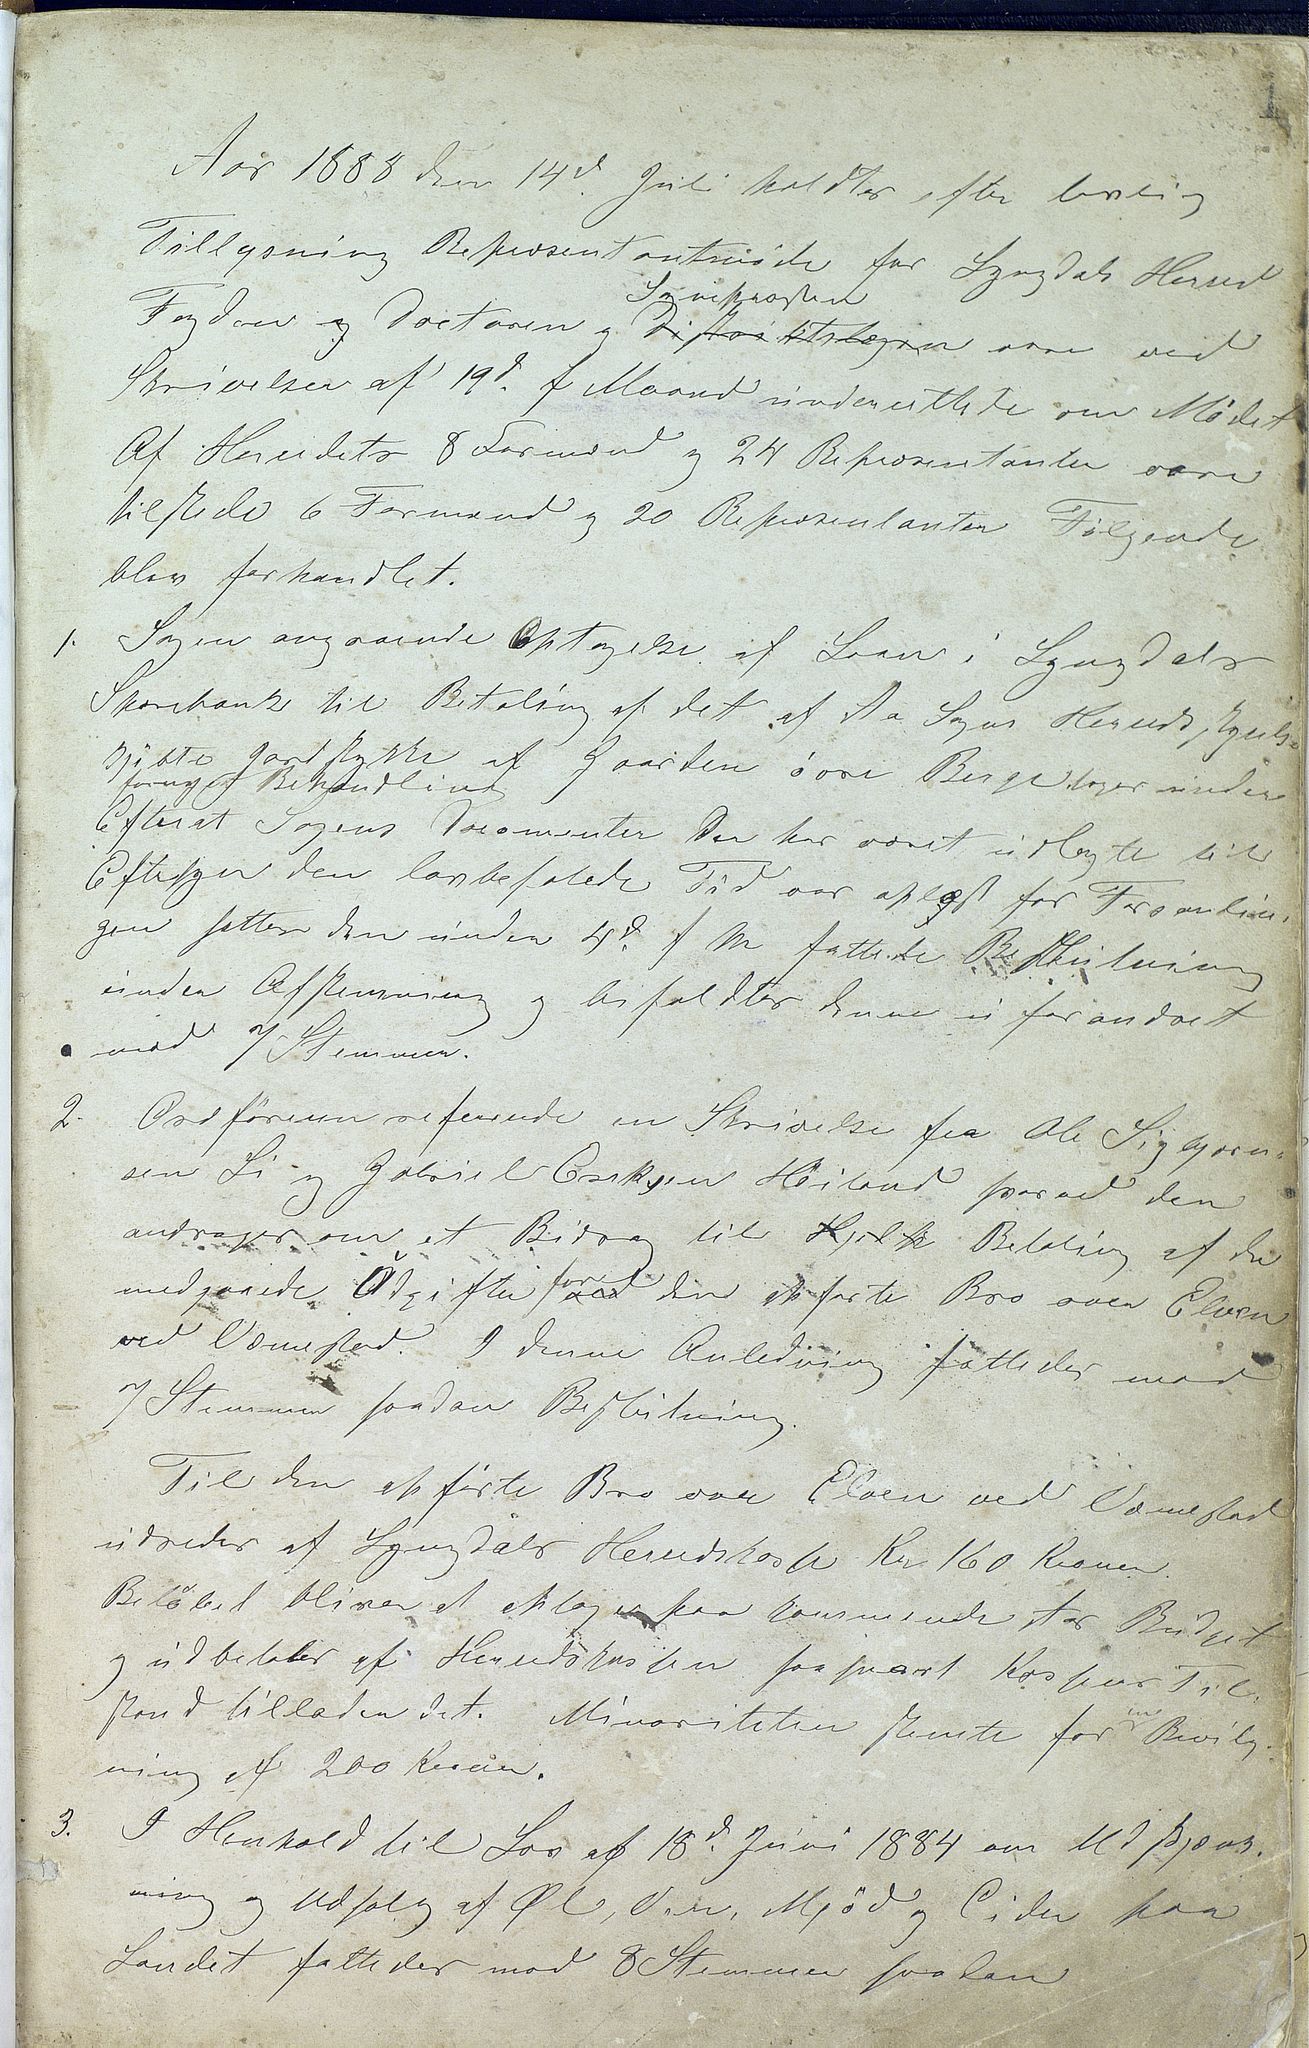 1
Aar 1888 den 14d. Juli holdtes efter lovlig
Tillysning Representantmøde for Lyngdals Herred
Sogneprosten
Fogden og Doctoren og Distriktslægen vare ved
Skrivelser af 19d. f Maaned underrettede om Mødet
Af Herredets 8 Formænd og 24 Representanter vare
tilstede 6 Formænd og 20 Representanter Følgende
blev forhandlet.
1. Sagen angaaende Optagelse af Laan i Lyngdals
Sparebank til Betaling af det af Aa Sogns Herredsstyrelse
kjøbte Jordstykke af Gaarden øvre Berge toges under
fornyet Behandling
Efterat Sagens Documenter der har været udlagte til
Eftersyn den lovbefalede Tid var oplæst for Forsamlin-
gen sattes den under 4d. f M fattede Beslutning
under Afstemning og bifaldtes denne uforandret
mod 7 Stemmer.
2. Ordføreren refererede en Skrivelse fra Ole Sigbjørn-
sen Li og Gabriel Høiland hvorved den
andrager om et Bidrag til Betaling af de
medgaaede Udgifter forved den opførte Bro over Elven
ved Vemestad. I denne Anledning fattedes mod
7 Stemmer saadan Beslutning.
Til den opførte Bro over Elven ved Vemestad
udredes af Lyngdals Herredskasse Kr 160 Kroner.
Beløbet bliver at optage paa kommende Aar Budget
og udbetales af Herredskassen saasnart Kassens Til-
stand tillader det. Minoriteten stemte for en Bevilg-
ning af 200 Kroner.
3. I Henhold til Lov af 18d. Juni 1884 om Udskjænk-
ning og Udsalg af Øl, Vin, Mjød og Cider paa
Landet fattedes mod 8 Stemmer saadan